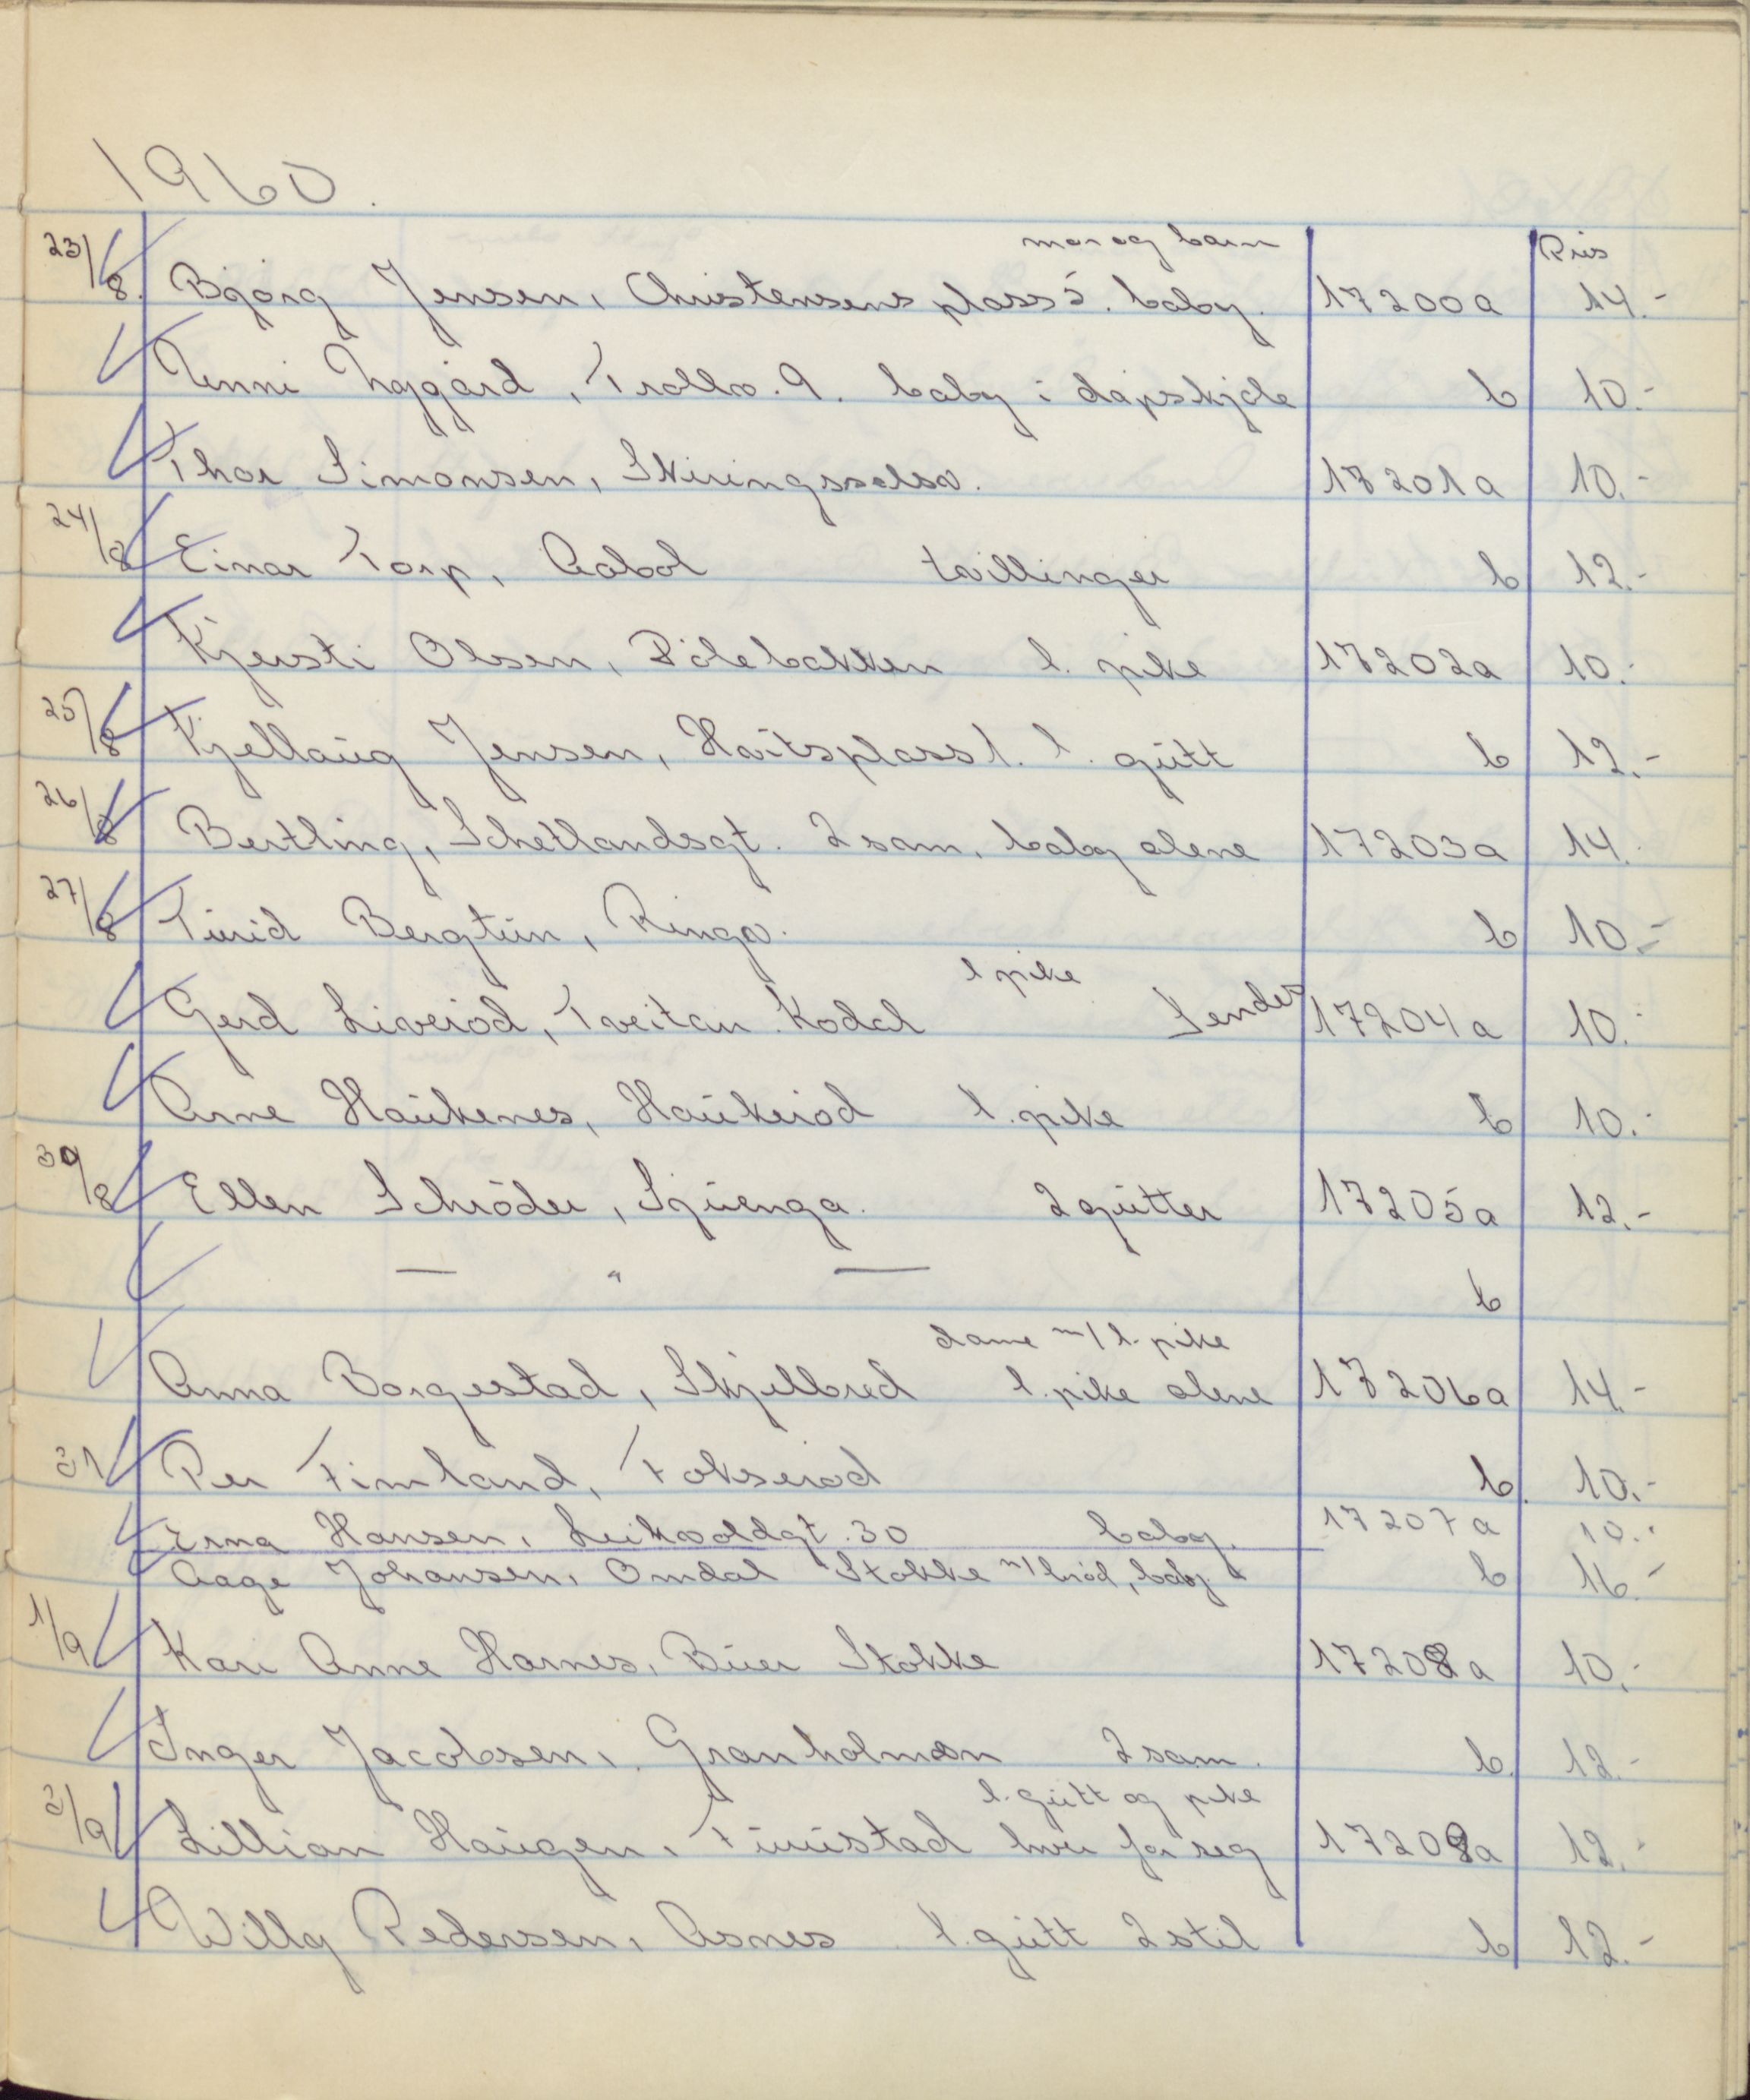 1960.
mor og barn Pris
23/8. Bjørg Jensen, Christensens plass 5. baby. 17200a 14.-
Unni Nygård, Trollv. 9. baby i dåpskjole b 10.-
Thor Simonsen, Skiringssalsv. 17201a 10.-
24/8 Einar Torp, Aabol tvillinger b 12.-
Kjersti Olsen, Bölebakken l. pike 17202a 10.-
25/8 Kjellaug Jensen, Havtsplass 1. l. gutt b 12.-
26/8 Bertling, Schetlandsgt. 2 sam. baby alene 17203a 14.-
27/8 Turid Bergtun, Ringv. b 10.-
l pike
Gerd Liveröd, Tveitan Kodal Sendes 17204a 10.-
Arne Haukenes, Haukeröd l. pike b 10.-
30/8 Ellen Schröder, Sjuenga. 2 gutter 17205a 12.-
— " — b
dame m/ l. pike
Anna Borgestad, Skjellbred l. pike alene 17206a 14.-
31 Per Fimland, Fokseröd b. 10.-
Erna Hansen, Leikvoldgt. 30 baby. 17207a 10.-
Aage Johansen, Omdal Stokke m/ bród, baby b 16.-
1/9 Kari Anne Harnes, Buer Stokke 17208a 10.-
Inger Jacobsen, Granholmen 2 sam. b. 12.-
l. gutt og pike
2/9 Lillian Haugen, Furustad hver for seg 17209a 12.-
Willy Pedersen, Asnes l. gutt 2 stil b 12.-